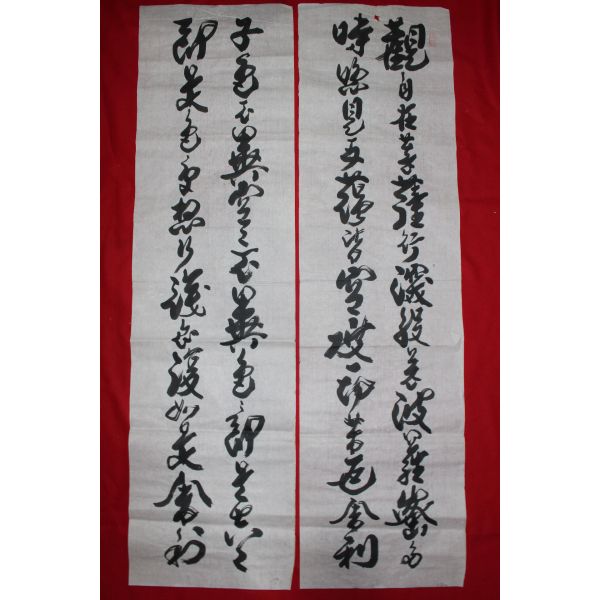 觀自在菩薩行深般若波羅蜜多
時照見五蘊皆空度一切苦厄舍利
子色不異空々不異色々即是空々
即是色受想行識亦復如是舍利